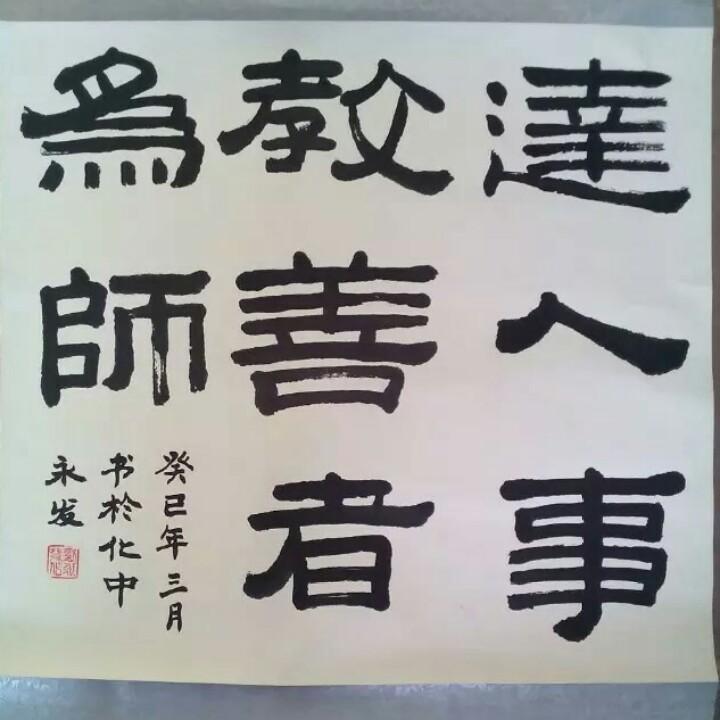 達人事
教善者
為師
癸巳年三月
书於化中
永发